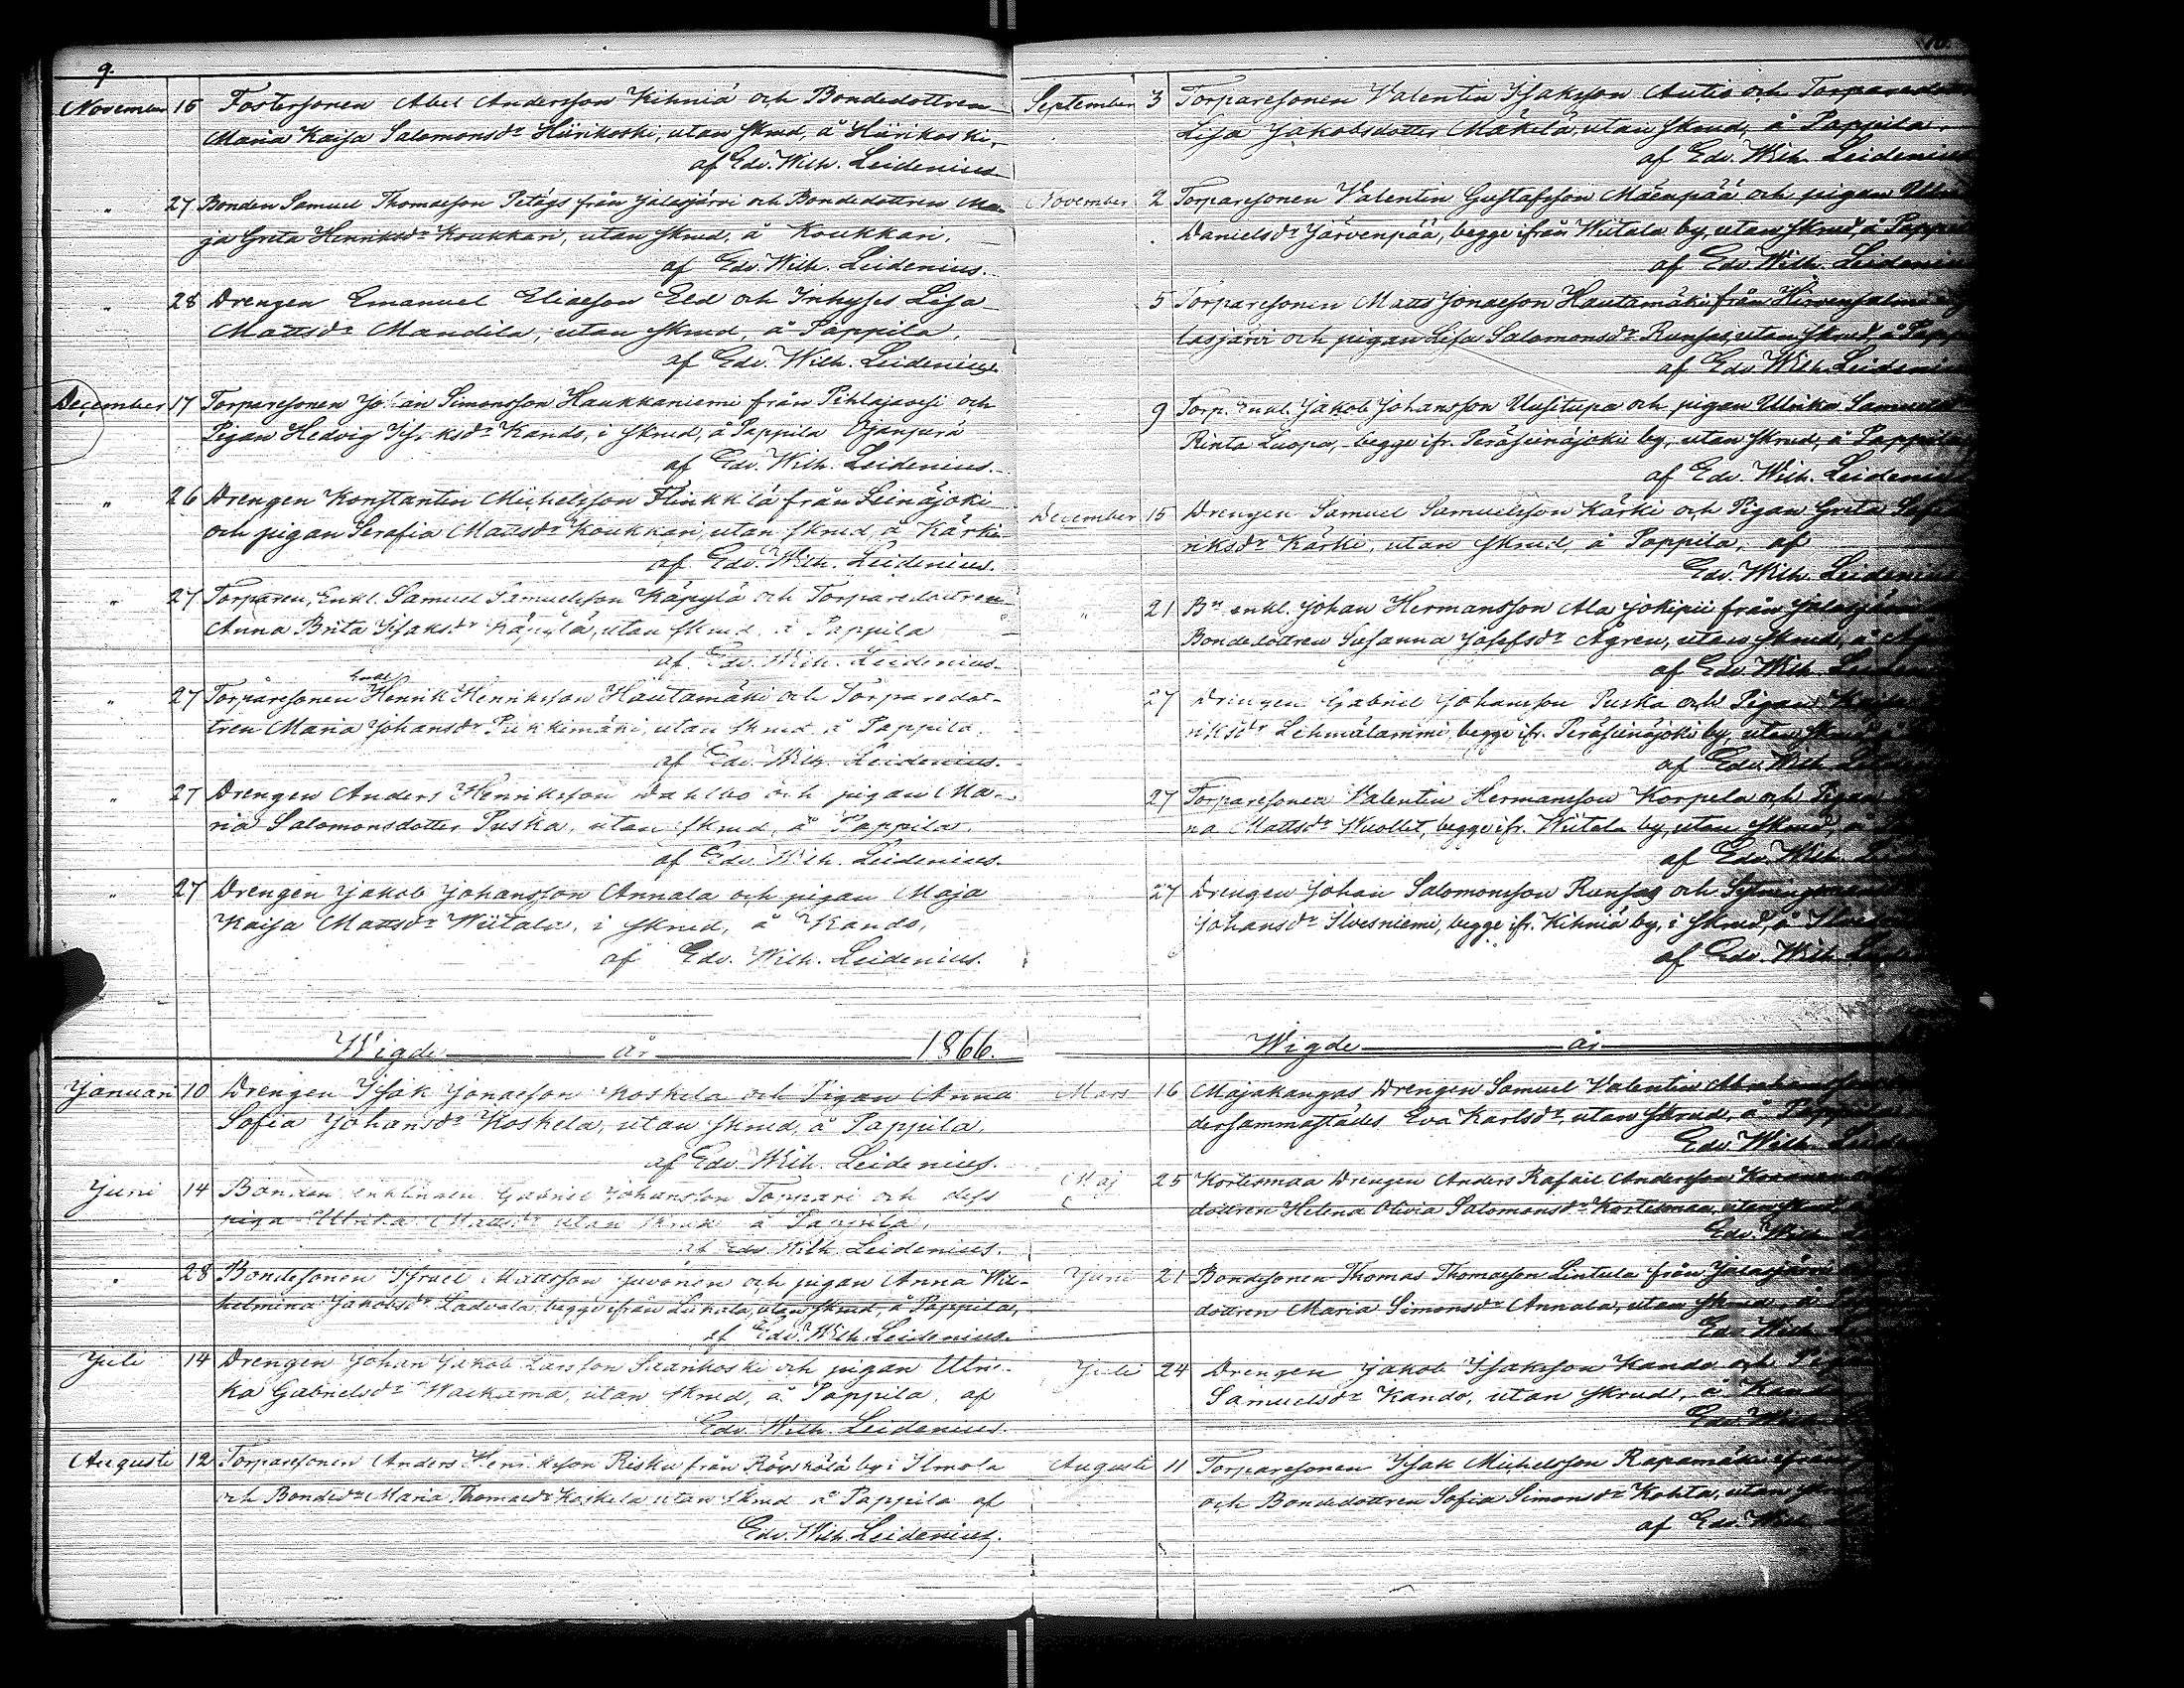 9.
November 15 Fostersonen Abel Andersson Kihniä och Bondedottren
Maria Kaisa Salomonsdr Hiirikoski, utan skrud, å Hiirikoski,
af Edv. Wilh. Leidenius.
" 27 Bonden Samuel Thomasson Petäys från Jalasjärvi och Bondedottren Ma-
ja Greta Henriksdr Koukkari, utan skrud, å Koukkari,
af Edv. Wilh. Leidenius.
" 28 Drengen Emanuel Eliasson Eld och Inhyses Lisa
Mattsdr Mandila, utan skrud, å Pappila,
af Edv. Wilh. Leidenius.
December 17 Torparesonen Johan Simonsson Haukkaniemi från Pihlajavesi och
Pigan Hedvig Isaksdr Kando, i skrud, å Pappila Ojanperä
af Edv. Wilh. Leidenius.
" 26 Drengen Konstantin Michelsson Flinkkilä från Seinäjoki
och pigan Serafia Mattsdr Koukkari, utan skrud, å Kärki
af Edv. Wilh. Leidenius.
" 27 Torparen, Enkl. Samuel Samuelsson Käpylä och Torparedottren
Anna Brita Isaksdr Käpylä, utan skrud, å Pappila
af Edv. Wilh. Leidenius.
" 27 Torparesonen Enkl. Henrik Henriksson Hautamäki och Torparedot-
tren Maria Johansdr Pukkimäki, utan skrud å Pappila.
af Edv. Wilh. Leidenius.
" 27 Drengen Anders Henriksson Dahlbo och pigan Ma-
ria Salomonsdotter Puska, utan skrud, å Pappila.
af Edv. Wilh. Leidenius.
" 27 Drengen Jakob Johansson Annala och pigan Maja
Kaisa Mattsdr Wiitala, i skrud, å Kando,
af Edv. Wilh. Leidenius.
Wigde år 1866.
Januari 10 Drengen Isak Jonasson Koskela och Pigan Anna
Sofia Johansdr Koskela, utan skrud, å Pappila,
af Edv. Wilh. Leidenius.
Juni 14 Bonden enklingen Gabriel Johansson Toppari och dess
piga Ulrika Mattsdr utan skrud å Pappila,
af Edv. Wilh. Leidenius.
" 28 Bondesonen Israel Mattsson Juvonen och pigan Anna Wil-
helmina Jakobsdr Ladvala, begge ifrån Luhala, utan skrud, å Pappila,
af Edv. Wilh. Leidenius.
Juli 14 Drengen Johan Jakob Larsson Saarikoski och pigan Ulri-
ka Gabrielsdr Waekama, utan skrud, å Pappila, af
Edv. Wilh. Leidenius.
Augusti 12 Torparesonen Anders Henriksson Risku från Röyskölä by i Ilmola
och Bondedr Maria Thomasdr Koskela utan skrud å Pappila af
Edv. Wilh. Leidenius.
10.
September 3 Torparesonen Valentin Isaksson Autio och
Lisa Jakobsdotter Mäkelä, utan skrud, å Pappila.
af Edv. Wilh. Leidenius
November 2 Torparesonen Valentin Gustafsson Mäenpää och pigan
Danielsdr Järvenpää, begge ifrån Wiitala by, utan skrud, å
af Edv. Wilh. Leidenius
5 Torparesonen Matts Jonasson Hautamäki från Hirvensalmi
lasjärvi och pigan Lisa Salomonsdr Runsas, utan skrud å
af Edv. Wilh. Leidenius
9 Torp. Enkl. Jakob Johansson Uusitupa och pigan Ulrika
Rinta Luopa, begge ifr. Peräseinäjoki by, utan skrud, å Pappila
af Edv. Wilh. Leidenius
December 15 Drengen Samuel Samuelsson Kärki och Pigan Greta
riksdr Kärki, utan skrud, å Pappila, af
Edv. Wilh. Leidenius
" 21 Bn enkl. Johan Hermansson Ala Jokipii från Jalasjärvi
Bondedottren Susanna Josefsdr Ågren, utan skrud, å
af Edv. Wilh.
27 Drengen Gabriel Johansson Puska och Pigan
riksdr Lehmälammi, begge ifr. Peräseinäjoki by, utan skrud
af Edv. Wilh.
27 Torparesonen Valentin Hermansson Korpela och Pigan
na Mattsdr Wuollet, begge ifr. Wiitala by, utan skrud, å
af Edv. Wilh.
27 Drengen Johan Salomonsson Runsas och
Johansdr Ilvesniemi, begge ifr. Kihniä by, i skrud, å
af Edv. Wilh.
Wigde år
Mars 16 Majakangas Drengen Samuel Valentin
dersammastädes Eva Karlsdr, utan skrud, å
Edv. Wilh.
Maj 25 Kortesmaa Drengen Anders Rafael Andersson
dottren Helena Olivia Salomonsdr Kortesmaa, utan skrud
Edv. Wilh.
Juni 21 Bondesonen Thomas Thomasson Lintula från Jalasjärvi
dottren Maria Simonsdr Annala, utan skrud,
Edv. Wilh.
Juli 24 Drengen Jakob Isaksson Kando och
Samuelsdr Kando, utan skrud, å Kando
Edv. Wilh.
Augusti 11 Torparesonen Isak Michelsson Rapamäki ifrån
och Bondedottren Sofia Simonsdr Kohta, utan
af Edv. Wilh.